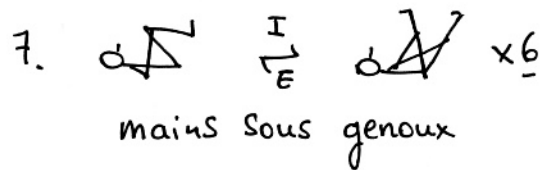 7. I E ×6
mains sous genoux